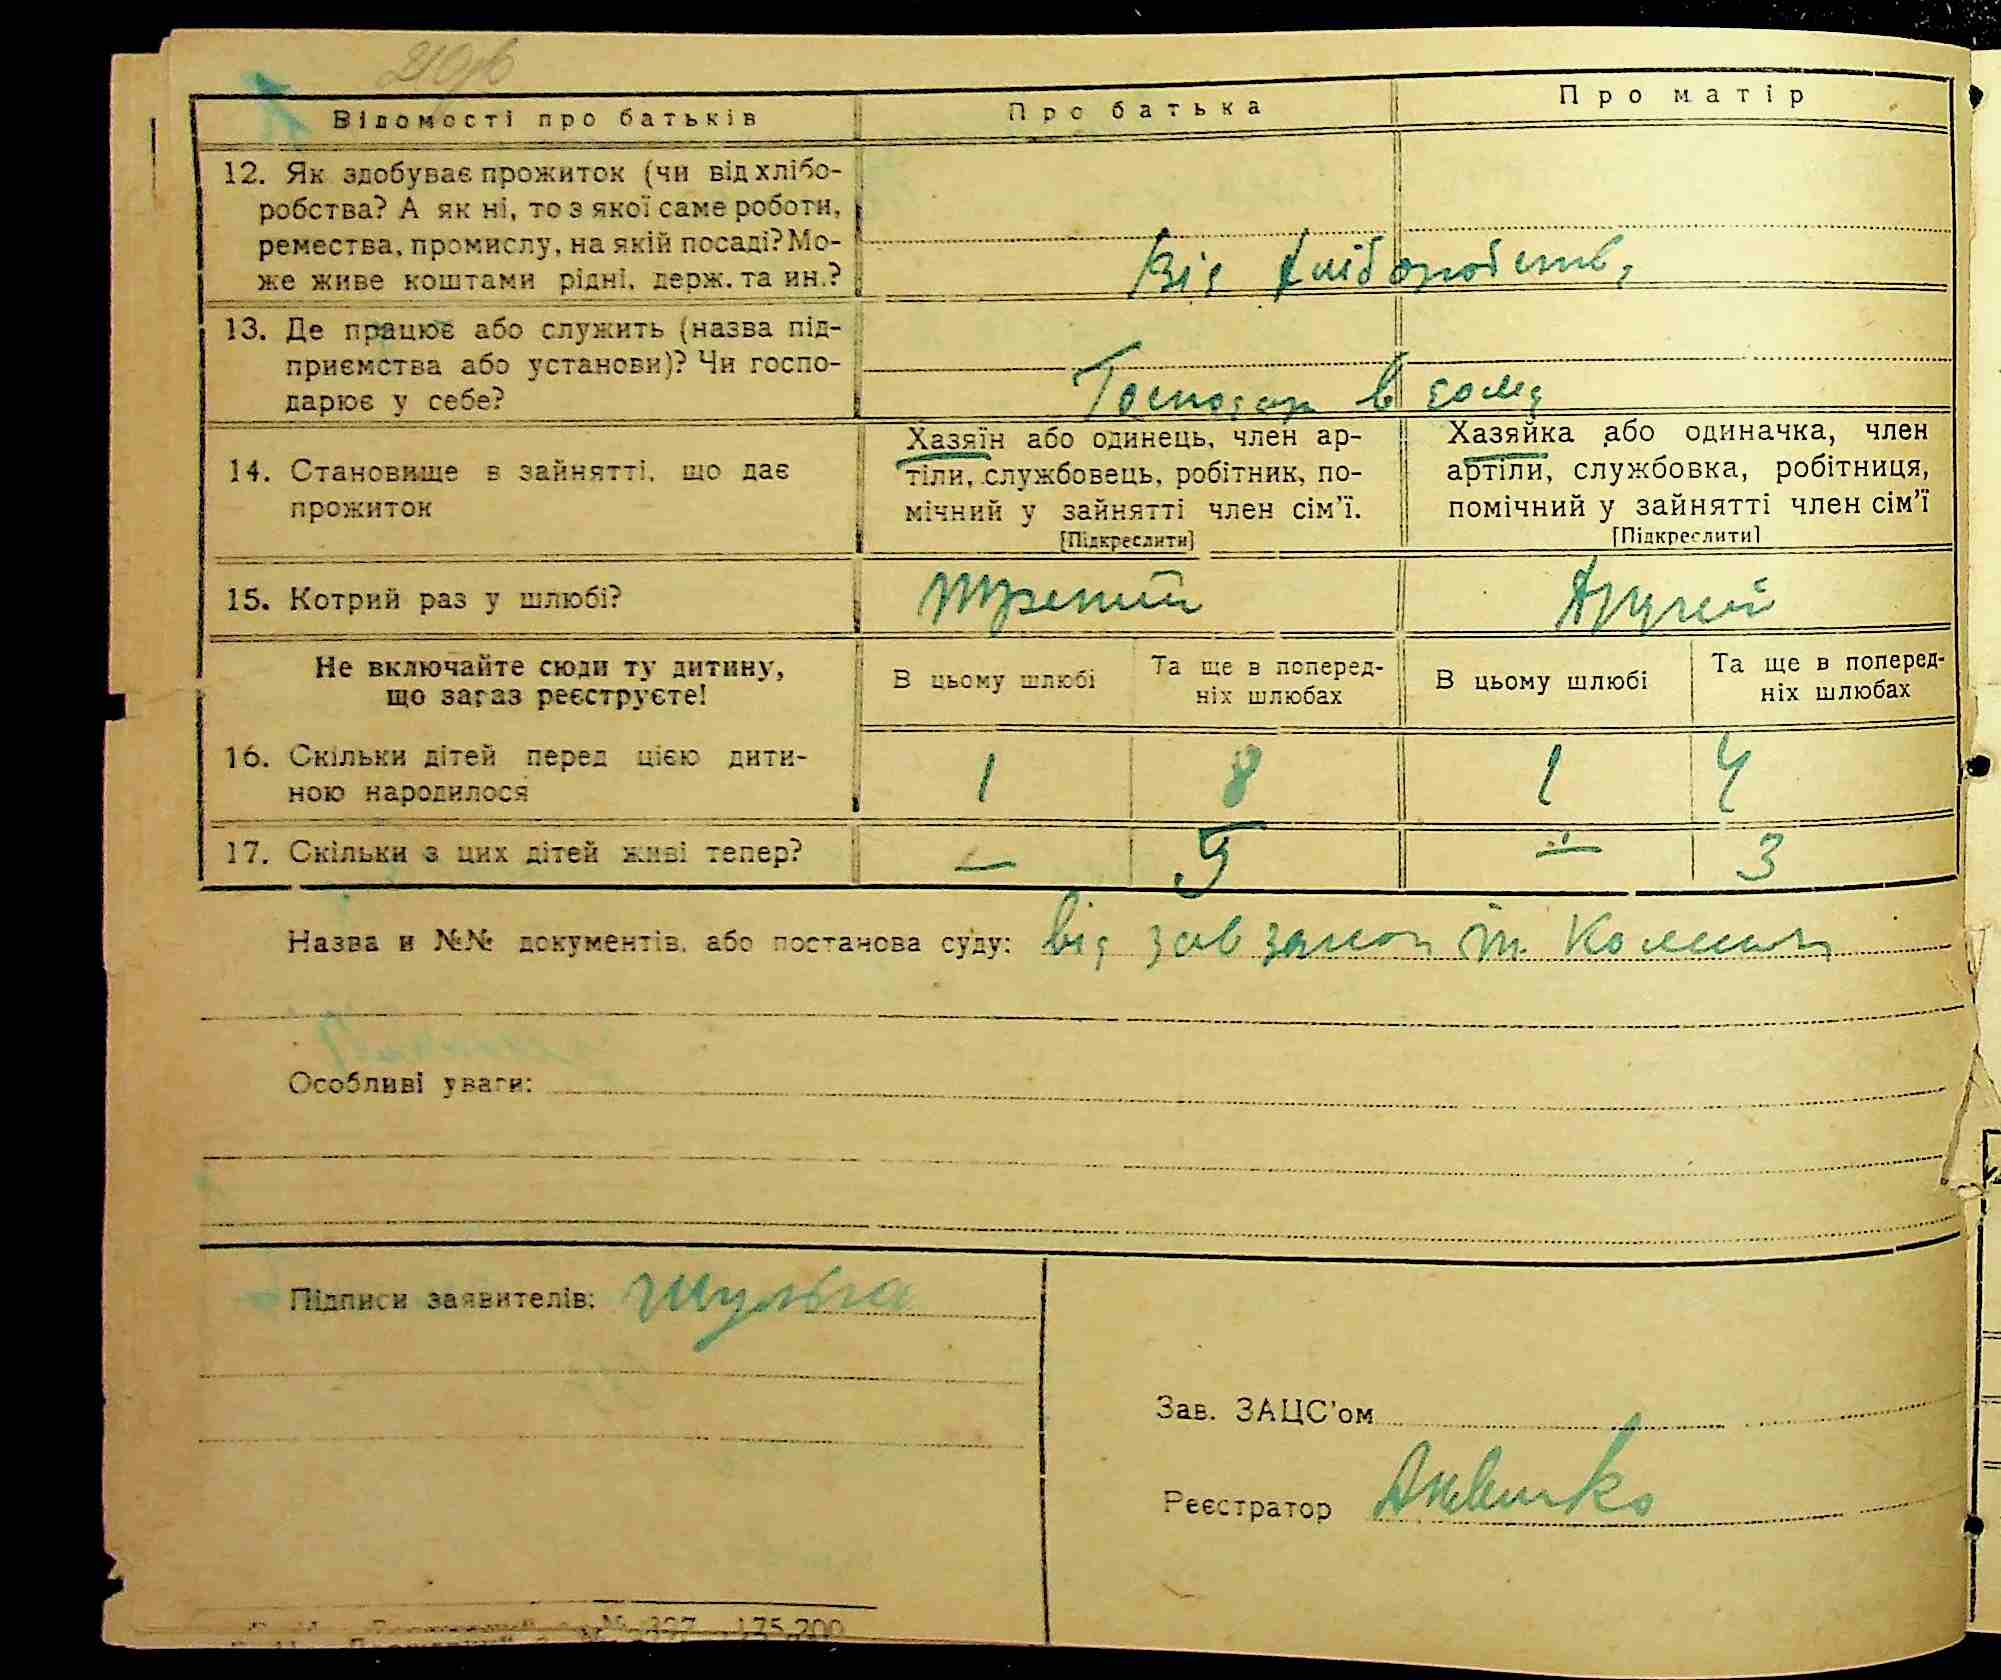 Відомості про батьків
Про батька
Про матір
12. Як здобуває прожиток (чи від хлібо-
робства? А як ні, то з якої саме роботи,
ремества, промислу, на якій посаді? Мо-
же живе коштами рідні, держ. та ин.?
Від хліборобств.
13. Де працює або служить (назва під-
приємства або установи)? Чи госпо-
дарює у себе?
Господар в
14. Становище в зайнятті, що дає
прожиток
Хазяїн або одинець, член ар-
тіли, службовець, робітник, по-
мічний у зайнятті член сім'ї.
[Підкреслити]
Хазяйка або одиначка, член
артіли, службовка, робітниця,
помічний у зайнятті член сім'ї
[Підкреслити]
15. Котрий раз у шлюбі?
Третий
Другий
Не включайте сюди ту дитину,
що зараз реєструєте!
В цьому шлюбі
Та ще в поперед-
ніх шлюбах
В цьому шлюбі
Та ще в поперед-
ніх шлюбах
16. Скільки дітей перед цією дити-
ною народилося
1
8
1
4
17. Скільки з цих дітей живі тепер?
—
5
—
3
Назва и №№ документів, або постанова суду: від
Особливі уваги:
Підписи заявителів: Шульга
Зав. ЗАЦС'ом
Реєстратор
№ 327 175.200